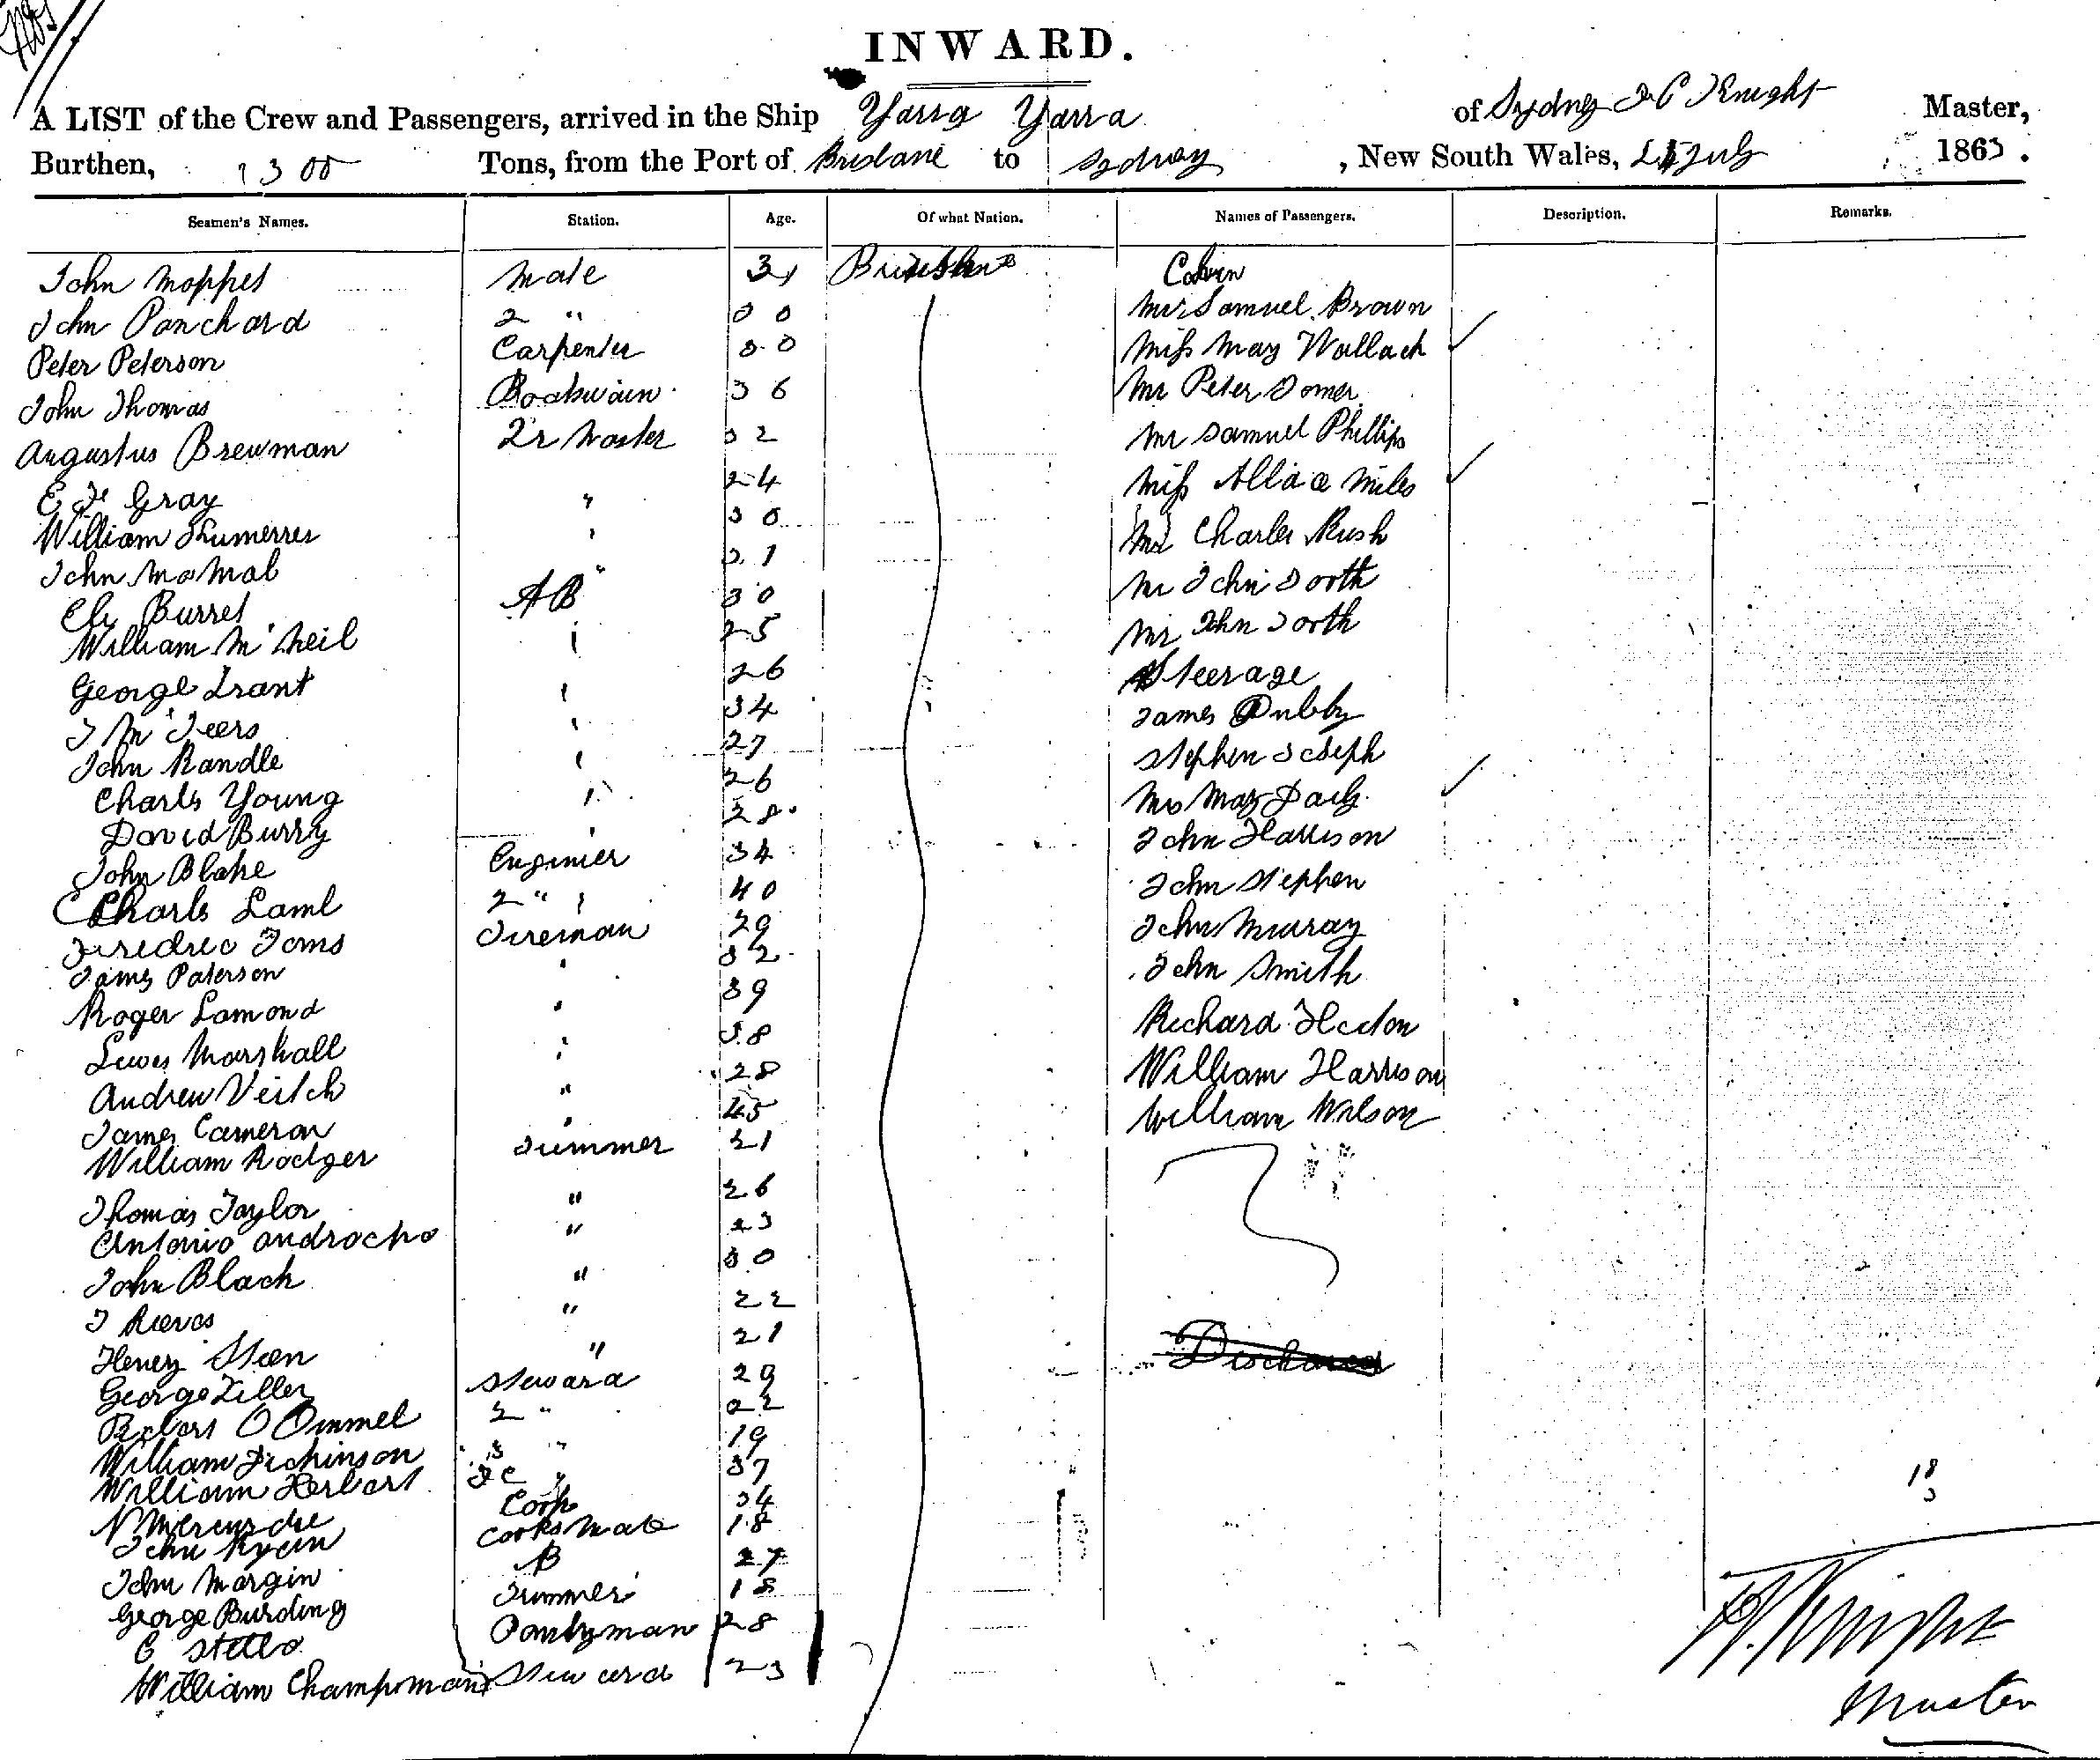 INWARD.
A LIST of the Crew and Passengers, arrived in the Ship Yarra Yarra of Sydney Knight Master,
Burthen, 1300 Tons, from the Port of Brisbane to Sydney, New South Wales, July 1863.
Seamen's Names. Station. Age. Of what Nation. Names of Passengers. Description. Remarks.
John Moppet Mate 31 Cabin
John Panchard 2 " 30 Mr Samuel Brown
Peter Peterson Carpenter 30 Miss May Wallach
John Thomas Boatswain 36 Mr Peter
Augustus Brewman Qr Master 32 Mr Samuel Phillips
E F Gray " 24 Miss Miles
William " 30 Mr Charles Rush
John " 31 Mr John
Ely Burrel AB 30 Mr John
William McNeil " 25
George Grant " 26 Steerage
" 34 James
John Randle " 27 Stephen Joseph
Charls Young " 26 Mrs May
David Burry " 28 John Harrison
John Blake Enginier 34 John Stephen
Charls 2 " 40 John Murray
Fredric Toms Fireman 29 John Smith
James Paterson " 32
Roger Lamond " 39 Richard
Lewes Marshall " 38 William Harrison
Andrew Veitch " 28 William Wilson
James Cameron " 45
William Rodger Trimmer 21
Thomas Taylor " 26
Antonio Androcho " 23
John Black " 30
J Rieves " 22
Henry " 21
George Steward 29 Discharged
Robert 2 " 22
William Dickinson 3 " 19
William Herbert " 37
Cook 34
John Ryan Cooks Mate 18
John Margin AB 27
George Burding Trimmer 18
C Pantryman 28
William Champman Steward 23
18
3
Knight
Master